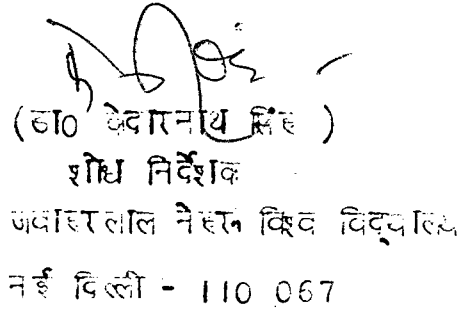 (डा० केदारनाथ सिंह)
शोध निर्देशक
जवाहरलाल नेहरू विश्व विद्यालय
नई दिल्ली - 110 067